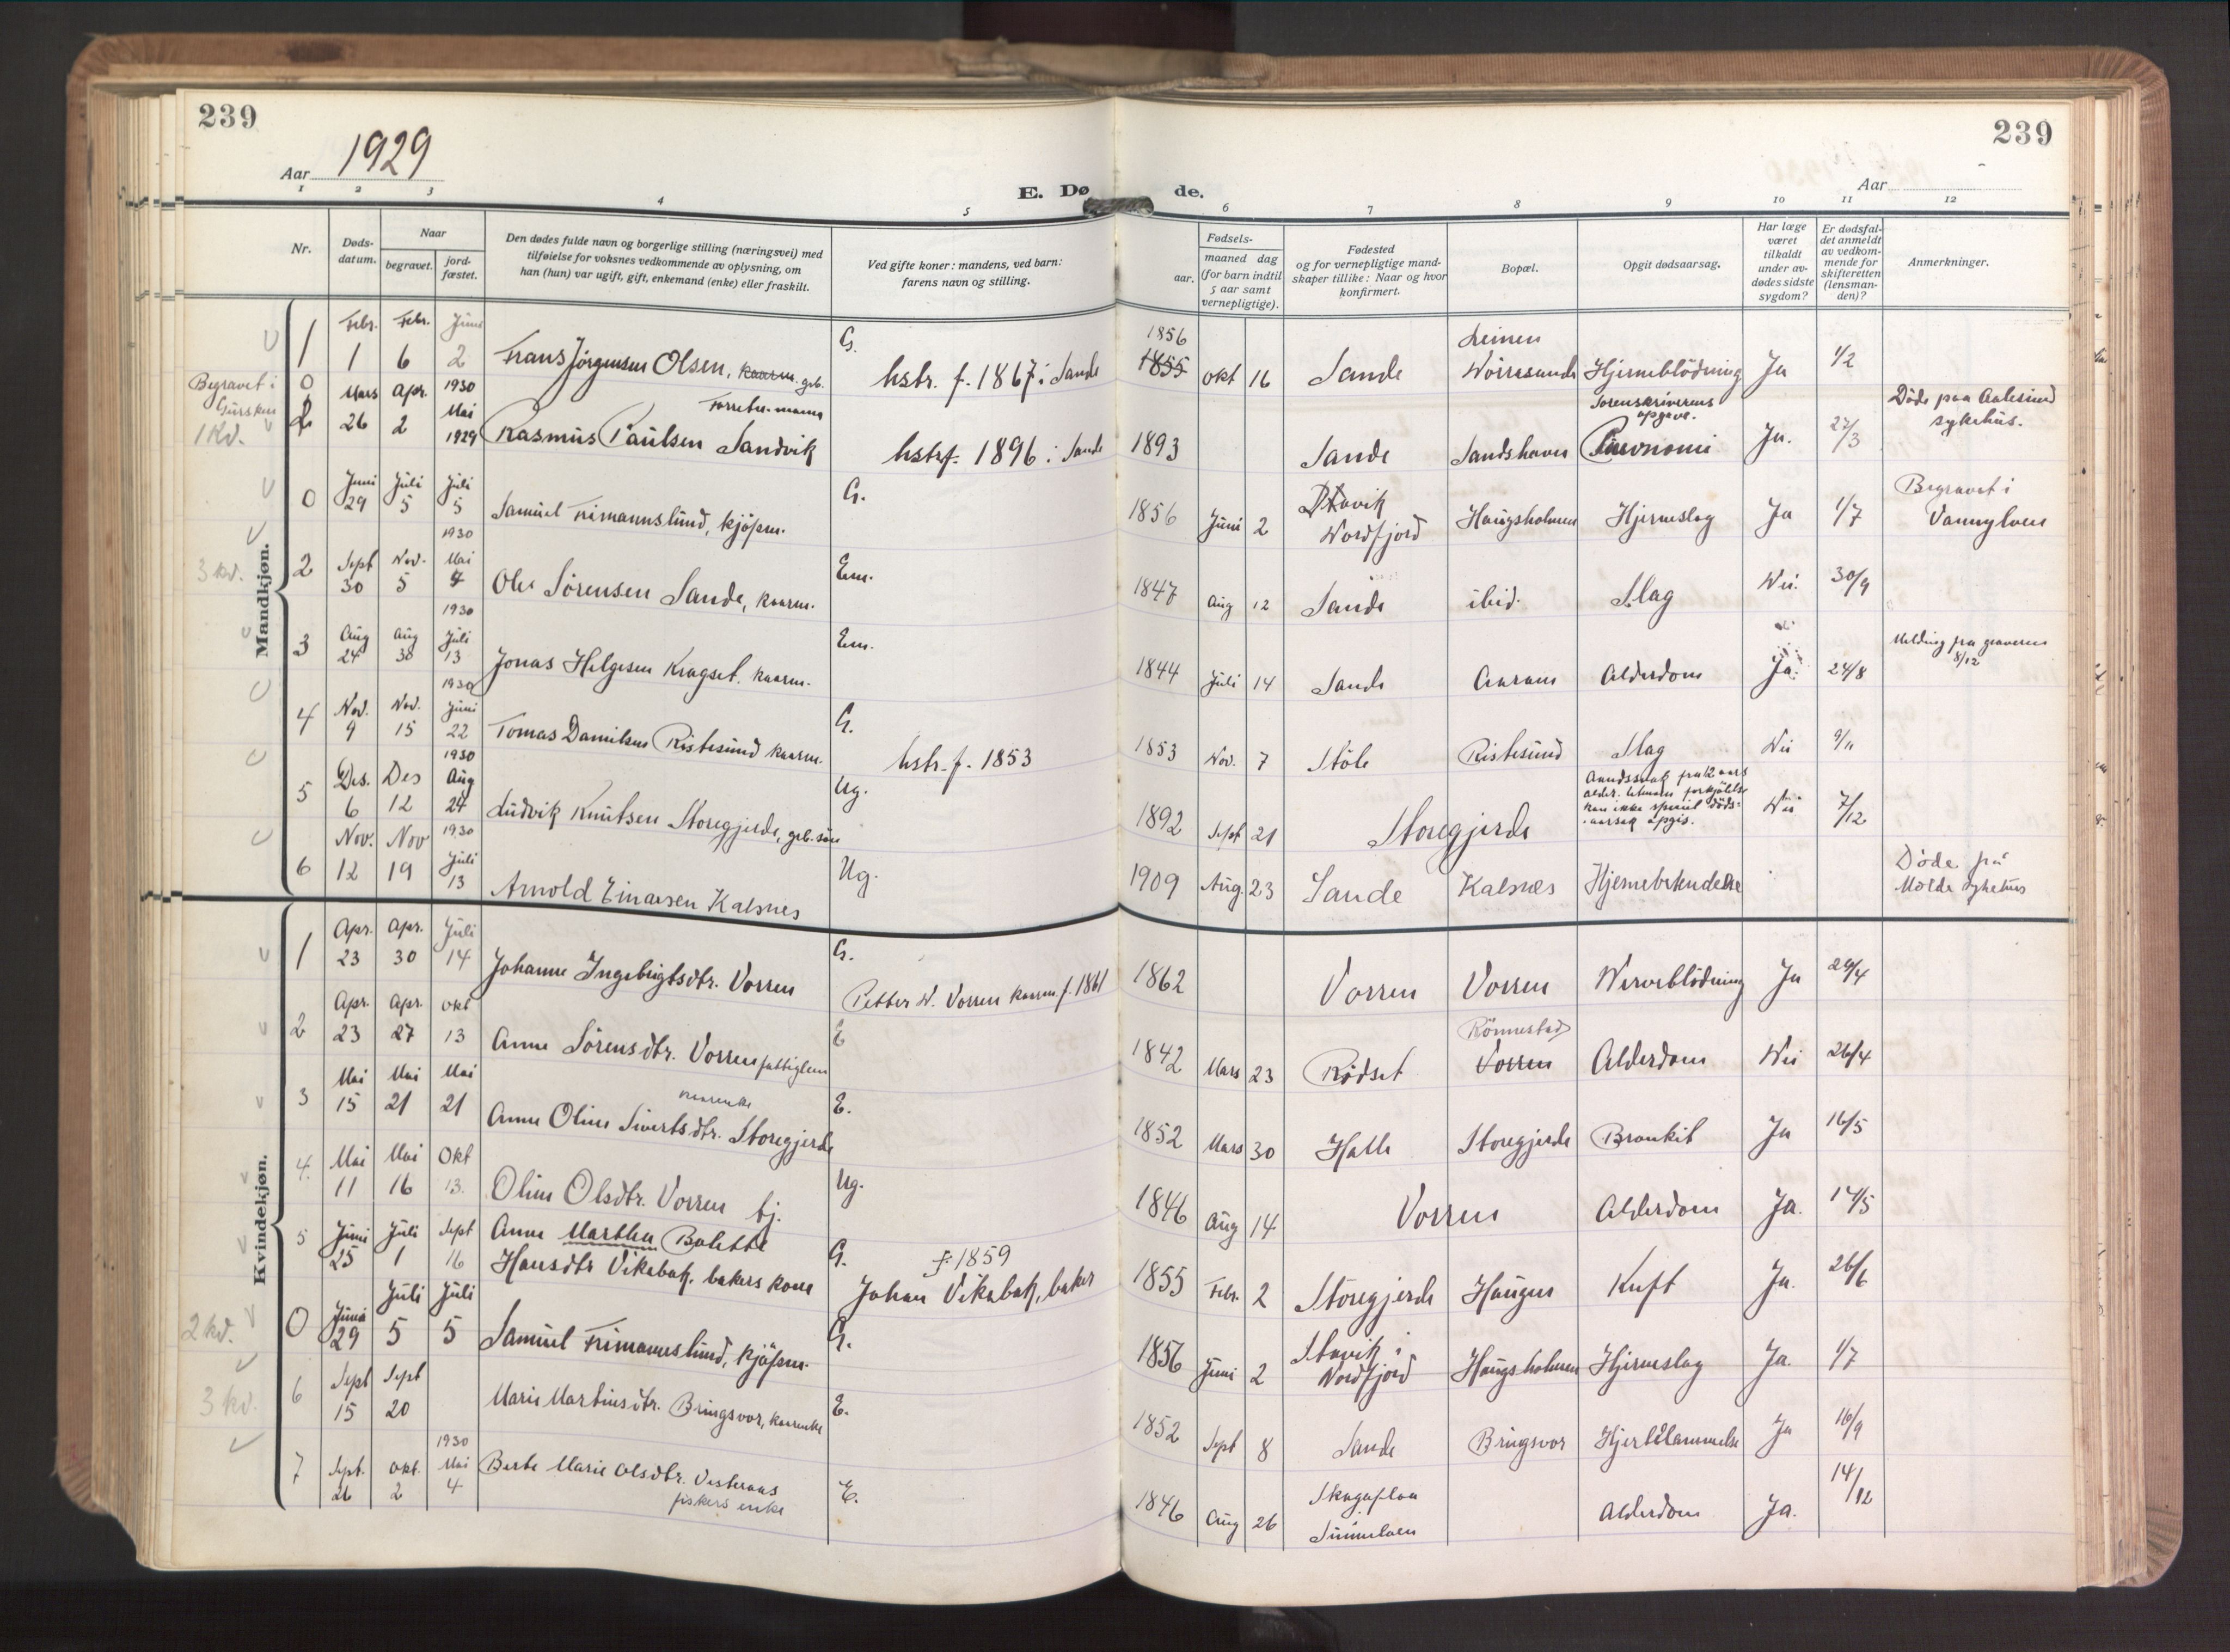 239
239
Aar 1929
Aar
E. Døde.
1 2 3 4 5 6 7 8 9 10 11 12
Nr.
Dødsdatum.
Naar
begravet.
jordfæstet.
Den dødes fulde navn og borgerlige stilling (næringsvei) med
tilføielse for voksnes vedkommende av oplysning, om
han (hun) var ugift, gift, enkemand (enke) eller fraskilt.
Ved gifte koner: mandens, ved barn:
farens navn og stilling.
Fødsels-
aar.
maaned dag
(for barn indtil
5 aar samt
vernepligtige).
Fødested
og for vernepligtige mand-
skaper tillike: Naar og hvor
konfirmert.
Bopæl.
Opgit dødsaarsag.
Har læge
været
tilkaldt
under av-
dødes sidste
sygdom?
Er dødsfal-
det anmeldt
av vedkom-
mende for
skifteretten
(lensman-
den)?
Anmerkninger.
Mandkjøn.
1 Febr. 1 Febr. 6 Juni 2 Frans Jørgensen Olsen, kaarm. geb. G. hstr. f. 1867 i Sande 1856 1855 Okt 16 Sande Leinen Wörresunde Hjerneblödning Ja 1/2
Begravet i Gursken 1 kd.
0 2 Mars 26 Apr. 2 1930 Mai 1929 Rasmus Paulsen Sandvik hstr f. 1896 i Sande 1893 Sande Sandshavn Sorenskriverens opgave. Ja. 27/3 Döde paa Aalesund sykehus.
0 Juni 29 Juli 5 Juli 5 Samuel Frimannslund, kjöpm. G. 1856 Juni 2 Stavik Nordfjord Haugsholmen Hjerneslag Ja 1/7 Begravet i Vannylven
3 kd.
2 Sept 30 Nov. 5 1930 Mai 4 Ole Sörensen Sande, kaarm. Em. 1847 Aug 12 Sande ibid. Slag Nei. 30/9
3 Aug 24 Aug 30 1930 Juli 13 Jonas Helgesen Kragset, kaarm. Em. 1844 Juli 14 Sande Aaram Alderdom Ja. 24/8 Melding fra graveren 8/12
4 Nov. 9 Nov. 15 1930 Juni 22 Tomas Danielsen Ristesund kaarm. G. hstr. f. 1853 1853 Nov. 7 Stöle Ristesund Slag Nei 9/11
5 Des. 6 Des 12 1930 Aug 24 Ludvik Knutsen Storegjerde, geb. sön Ug. 1892 Sept 21 Storegjerde Aandssvak fra 12 aars alder. kan ikke dödsaarsag opgis. Nei 7/12
6 Nov. 12 Nov 19 1930 Juli 13 Arnold Einarsen Kalsnes Ug. 1909 Aug. 23 Sande Kalsnes Hjernebetendelse Döde på Molde sykehus
Kvindekjøn.
1 Apr. 23 Apr. 30 Juli 14 Johanne Ingebrigtsdtr. Vorren G. Petter N. Vorren kaarm f. 1861 1862 Vorren Vorren Nerveblödning Ja 29/4
2 Apr. 23 Apr. 27 Okt 13 Anne Sörensdtr. Vorren fattiglem E 1842 Mars 23 Rödset Rönnestad Vorren Alderdom Nei 26/4
3 Mai 15 Mai 21 Mai 21 Anne Oline Sivertsdtr. Storegjerde E. 1852 Mars 30 Halle Storegjerde Bronkit Ja 16/5
4. Mai 11 Mai 16 Okt 13. Oline Olsdtr. Vorren tj. Ug. 1846 Aug 14 Vorren Alderdom Ja. 14/5
5 Juni 25 Juli 1 Sept 16 Anne Marthea Bolette Hansdtr Vikebak, bakers kone G. f. 1859 Johan Vikebak, baker 1855 Febr. 2 Storegjerde Haugen Kreft Ja. 26/6
2 kd.
0 Juni 29 Juli 5 Juli 5 Samuel Frimannslund, kjöpm. G. 1856 Juni 2 Stavik i Nordfjord Haugsholmen Hjerneslag Ja. 1/7
3 kd.
6 Sept 15 Sept 20 Marie Martinusdtr. Bringsvor, kaarenke E. 1852 Sept 8 Sande Bringsvor Hjertelammelse Ja 16/9
7 Sept. 26 Okt. 2 1930 Mai 4 Berte Marie Olsdtr. Vesteraas fiskers enke E. 1846 Aug 26 Skageflaa Sunnelven Alderdom Ja. 14/12